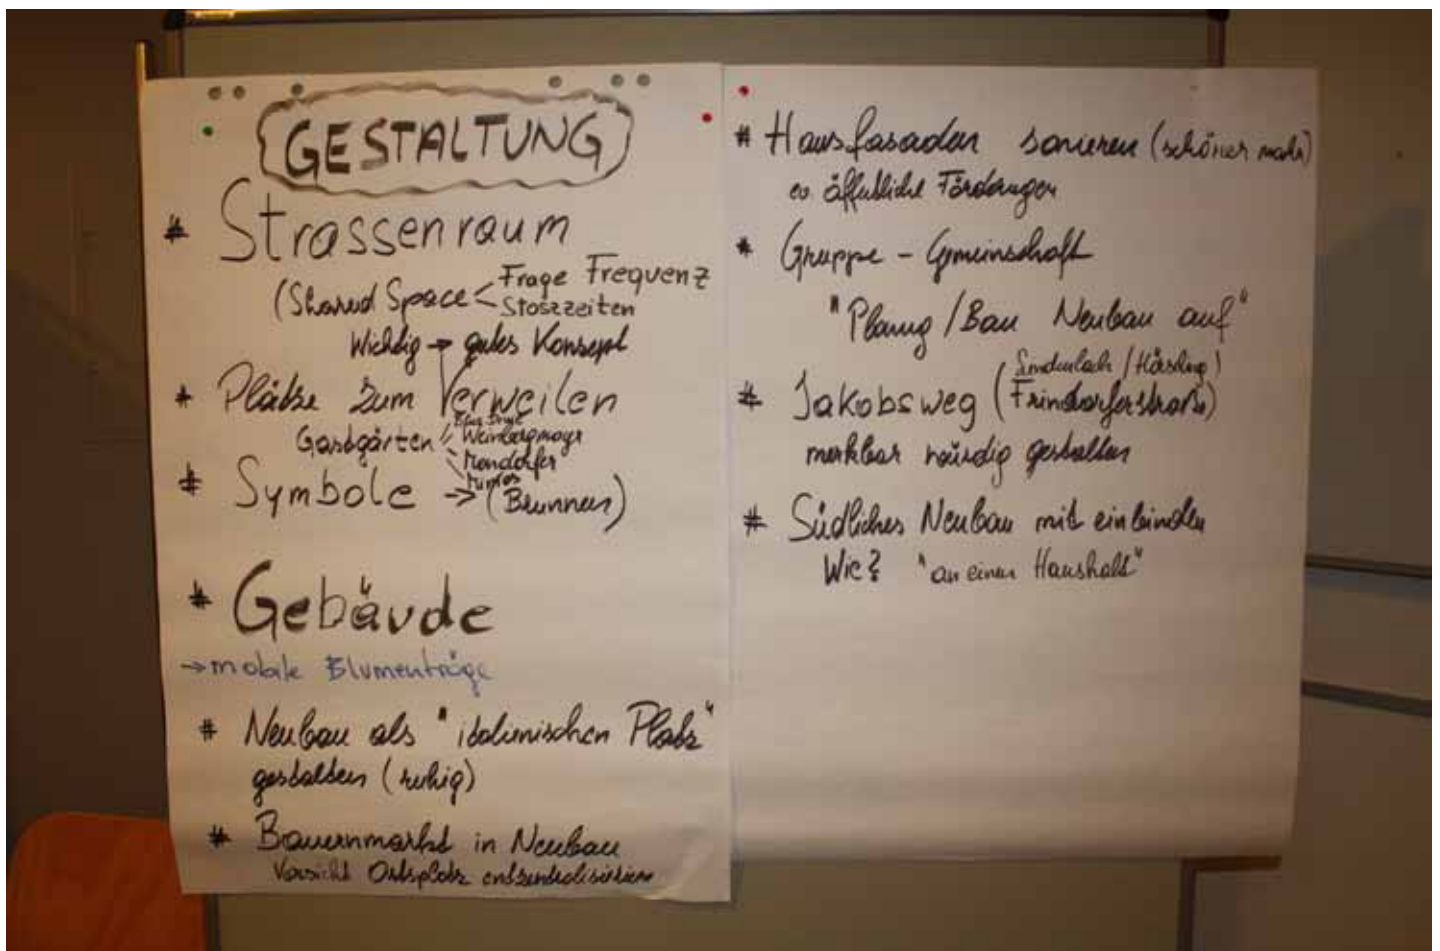 GESTALTUNG
# Strassenraum
(Shared Space < Frage Frequenz
Stoszzeiten
Wichtig → gutes Konzept
# Plätze zum Verweilen
Gastgärten
Weinbergmayr
Mandorfer
# Symbole → (Brunnen)
# Gebäude
→ mobile Blumentröge
# Neubau als "italienischen Platz"
gestalten (ruhig)
# Bauernmarkt in Neubau
Vorsicht Ortsplatz entzentralisieren
# Hausfasaden sanieren (schöner machen)
ev. öffentliche Förderungen
# Gruppe - Gemeinschaft
"Planung / Bau Neubau auf"
# Jakobsweg (Trindorferstraße)
/ Hörsching)
merkbar würdig gestalten
# Südliches Neubau mit einbinden
Wie? "an einen Haushalt"